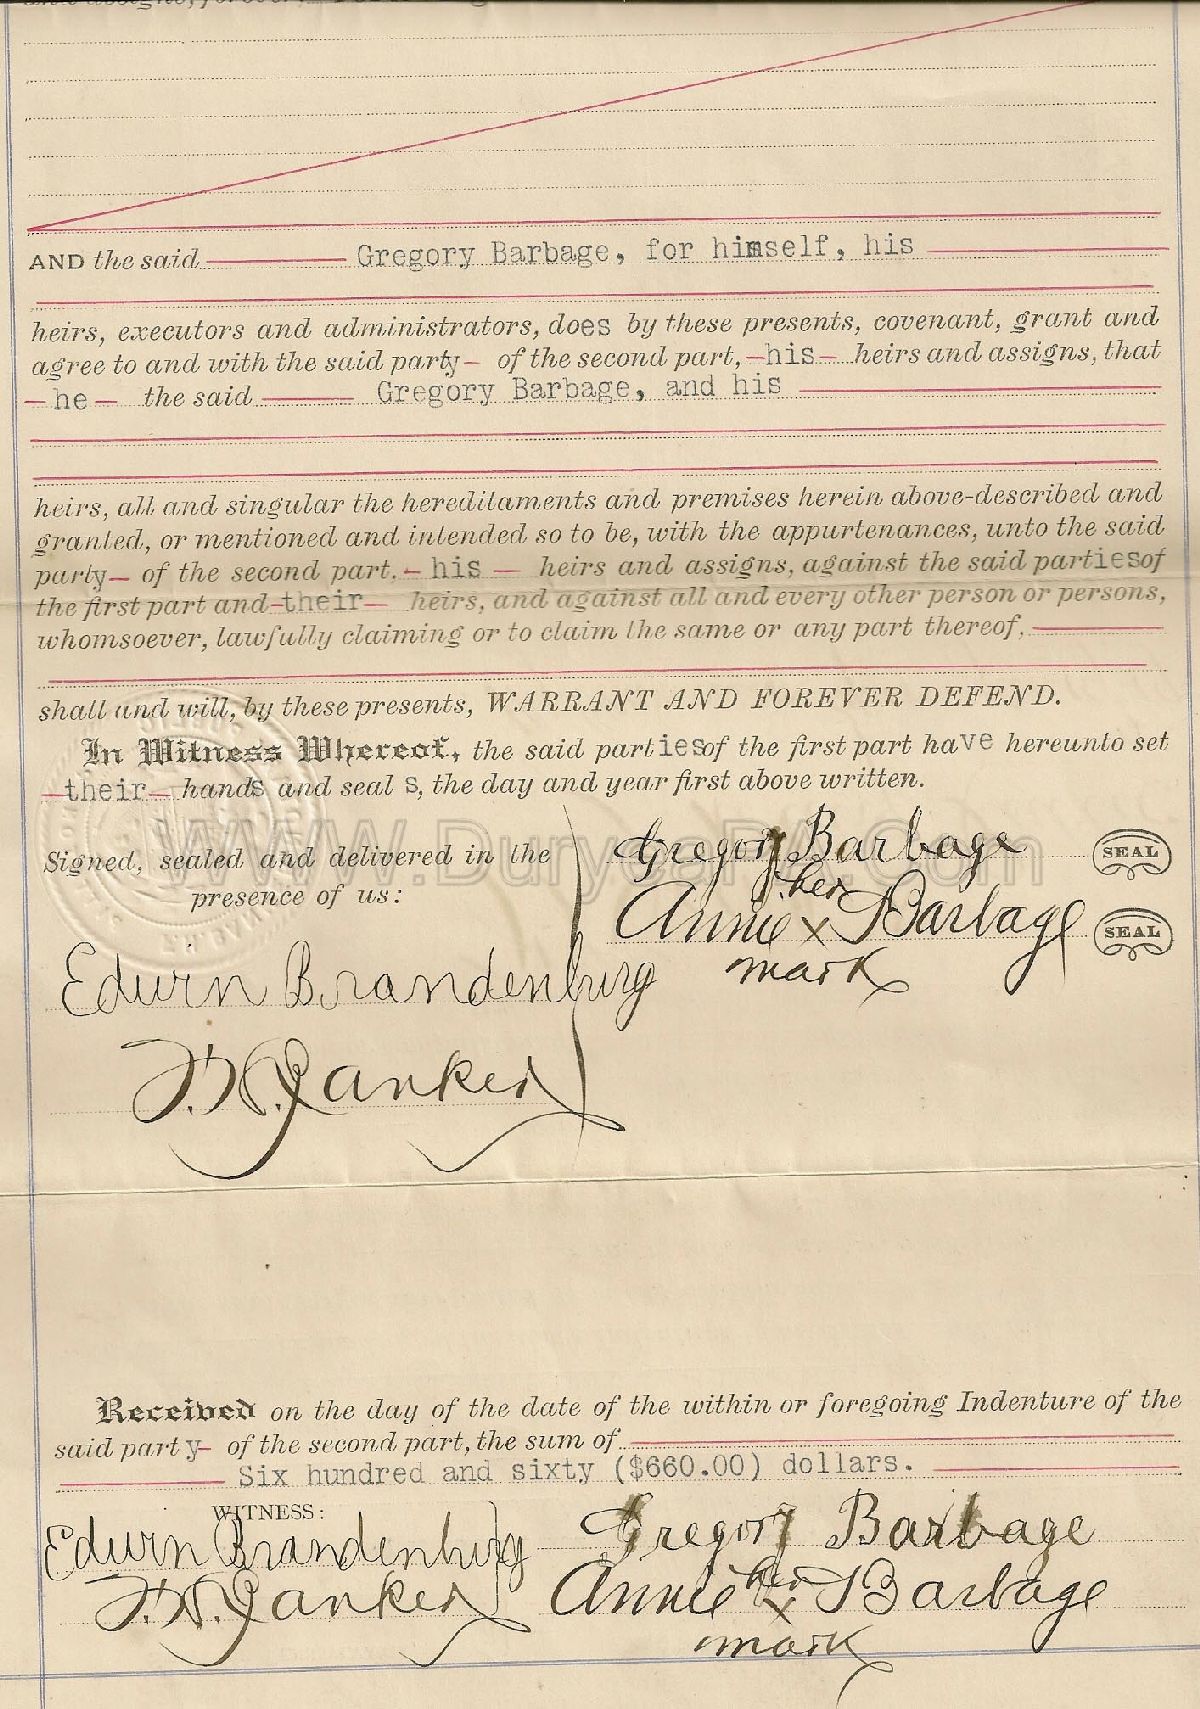 AND the said Gregory Barbage, for himself, his
heirs, executors and administrators, does by these presents, covenant, grant and
agree to and with the said party of the second part, his heirs and assigns, that
he the said Gregory Barbage, and his
heirs, all and singular the hereditaments and premises herein above-described and
granted, or mentioned and intended so to be, with the appurtenances, unto the said
party of the second part, his heirs and assigns, against the said parties of
the first part and their heirs, and against all and every other person or persons,
whomsoever, lawfully claiming or to claim the same or any part thereof,
shall and will, by these presents, WARRANT AND FOREVER DEFEND.
In Witness Whereof, the said parties of the first part have hereunto set
their hands and seals, the day and year first above written.
Signed, sealed and delivered in the
presence of us:
Gregory Barbage SEAL
her
Annie x Barbage SEAL
mark
Edwin Brandenburg
www.DuryeaPA.com
Received on the day of the date of the within or foregoing Indenture of the
said party of the second part, the sum of
Six hundred and sixty ($660.00) dollars.
WITNESS:
Edwin Brandenburg Gregory Barbage
her
Annie x Barbage
mark